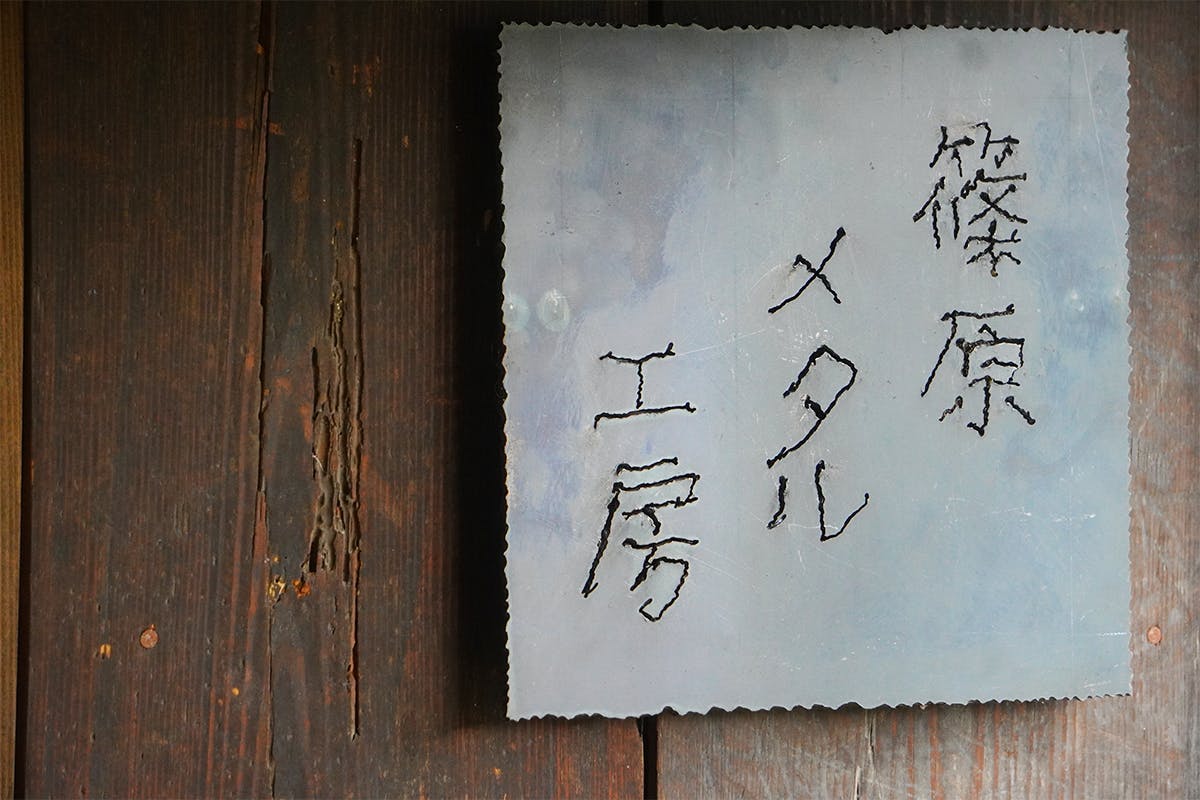 篠原
メタル
工房